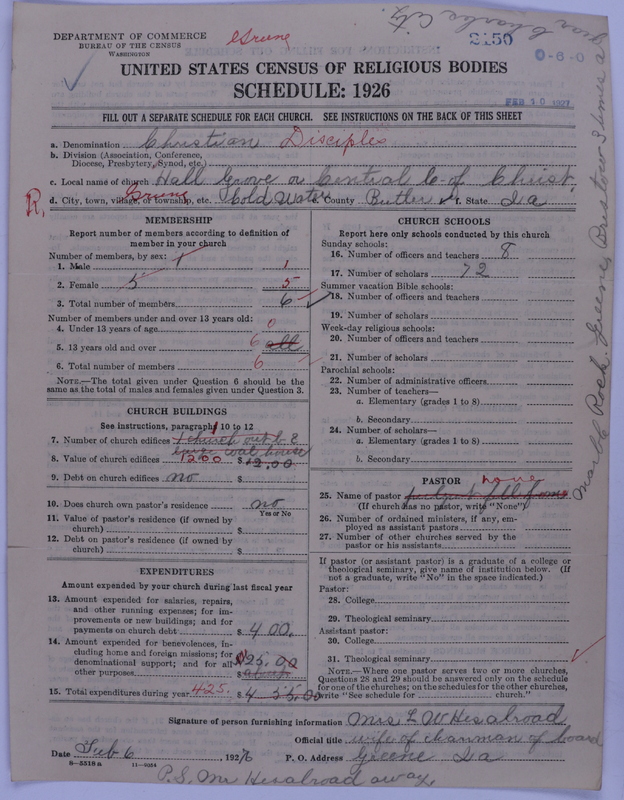 DEPARTMENT OF COMMERCE
BUREAU OF THE CENSUS
WASHINGTON
Greene
2150
0-6-0
UNITED STATES CENSUS OF RELIGIOUS BODIES
SCHEDULE: 1926
FEB 10 1927
FILL OUT A SEPARATE SCHEDULE FOR EACH CHURCH. SEE INSTRUCTIONS ON THE BACK OF THIS SHEET
a. Denomination Christian Disciples
b. Division (Association, Conference,
Diocese, Presbytery, Synod, etc.)
c. Local name of church Hall Grove or Central C. of Christ,
R. Greene
d. City, town, village, or township, etc. Cold Water e. County Butler f. State Ia
MEMBERSHIP
Report number of members according to definition of
member in your church
Number of members, by sex:
1. Male 1 1
2. Female 5 5
3. Total number of members 6
Number of members under and over 13 years old:
4. Under 13 years of age 0
5. 13 years old and over 6 all
6. Total number of members 6
NOTE.—The total given under Question 6 should be
the same as the total of males and females given under Question 3.
CHURCH BUILDINGS
See instructions, paragraphs 10 to 12
7. Number of church edifices 1 church
coal house
8. Value of church edifices 1200 $ 12.00
9. Debt on church edifices no $
10. Does church own pastor's residence no
Yes or No
11. Value of pastor's residence (if owned by
church) $
12. Debt on pastor's residence (if owned by
church) $
EXPENDITURES
Amount expended by your church during last fiscal year
13. Amount expended for salaries, repairs,
and other running expenses; for im-
provements or new buildings; and for
payments on church debt $ 400.
14. Amount expended for benevolences, in-
cluding home and foreign missions; for
denominational support; and for all
other purposes $ 25.00
15. Total expenditures during year 425. $
CHURCH SCHOOLS
Report here only schools conducted by this church
Sunday schools:
16. Number of officers and teachers 8
17. Number of scholars 72
Summer vacation Bible schools:
18. Number of officers and teachers
19. Number of scholars
Week-day religious schools:
20. Number of officers and teachers
21. Number of scholars
Parochial schools:
22. Number of administrative officers
23. Number of teachers—
a. Elementary (grades 1 to 8)
b. Secondary
24. Number of scholars—
a. Elementary (grades 1 to 8)
b. Secondary
PASTOR
none
25. Name of pastor
(If church has no pastor, write "None")
26. Number of ordained ministers, if any, em-
ployed as assistant pastors
27. Number of other churches served by the
pastor or his assistants
If pastor (or assistant pastor) is a graduate of a college or
theological seminary, give name of institution below. (If
not a graduate, write "No" in the space indicated.)
Pastor:
28. College
29. Theological seminary
Assistant pastor:
30. College
31. Theological seminary
NOTE.—Where one pastor serves two or more churches,
Questions 28 and 29 should be answered only on the schedule
for one of the churches; on the schedules for the other churches,
write "See schedule for church."
Signature of person furnishing information Mrs L W Hesalroad
Official title wife of chairman of board
Date Feb 6, 1926 P. O. Address Greene Ia
8—5518a 11—9054
P.S. Mr Hesalroad away.
Marble Rock. Greene, Bristow 3 times a
year Charles City.